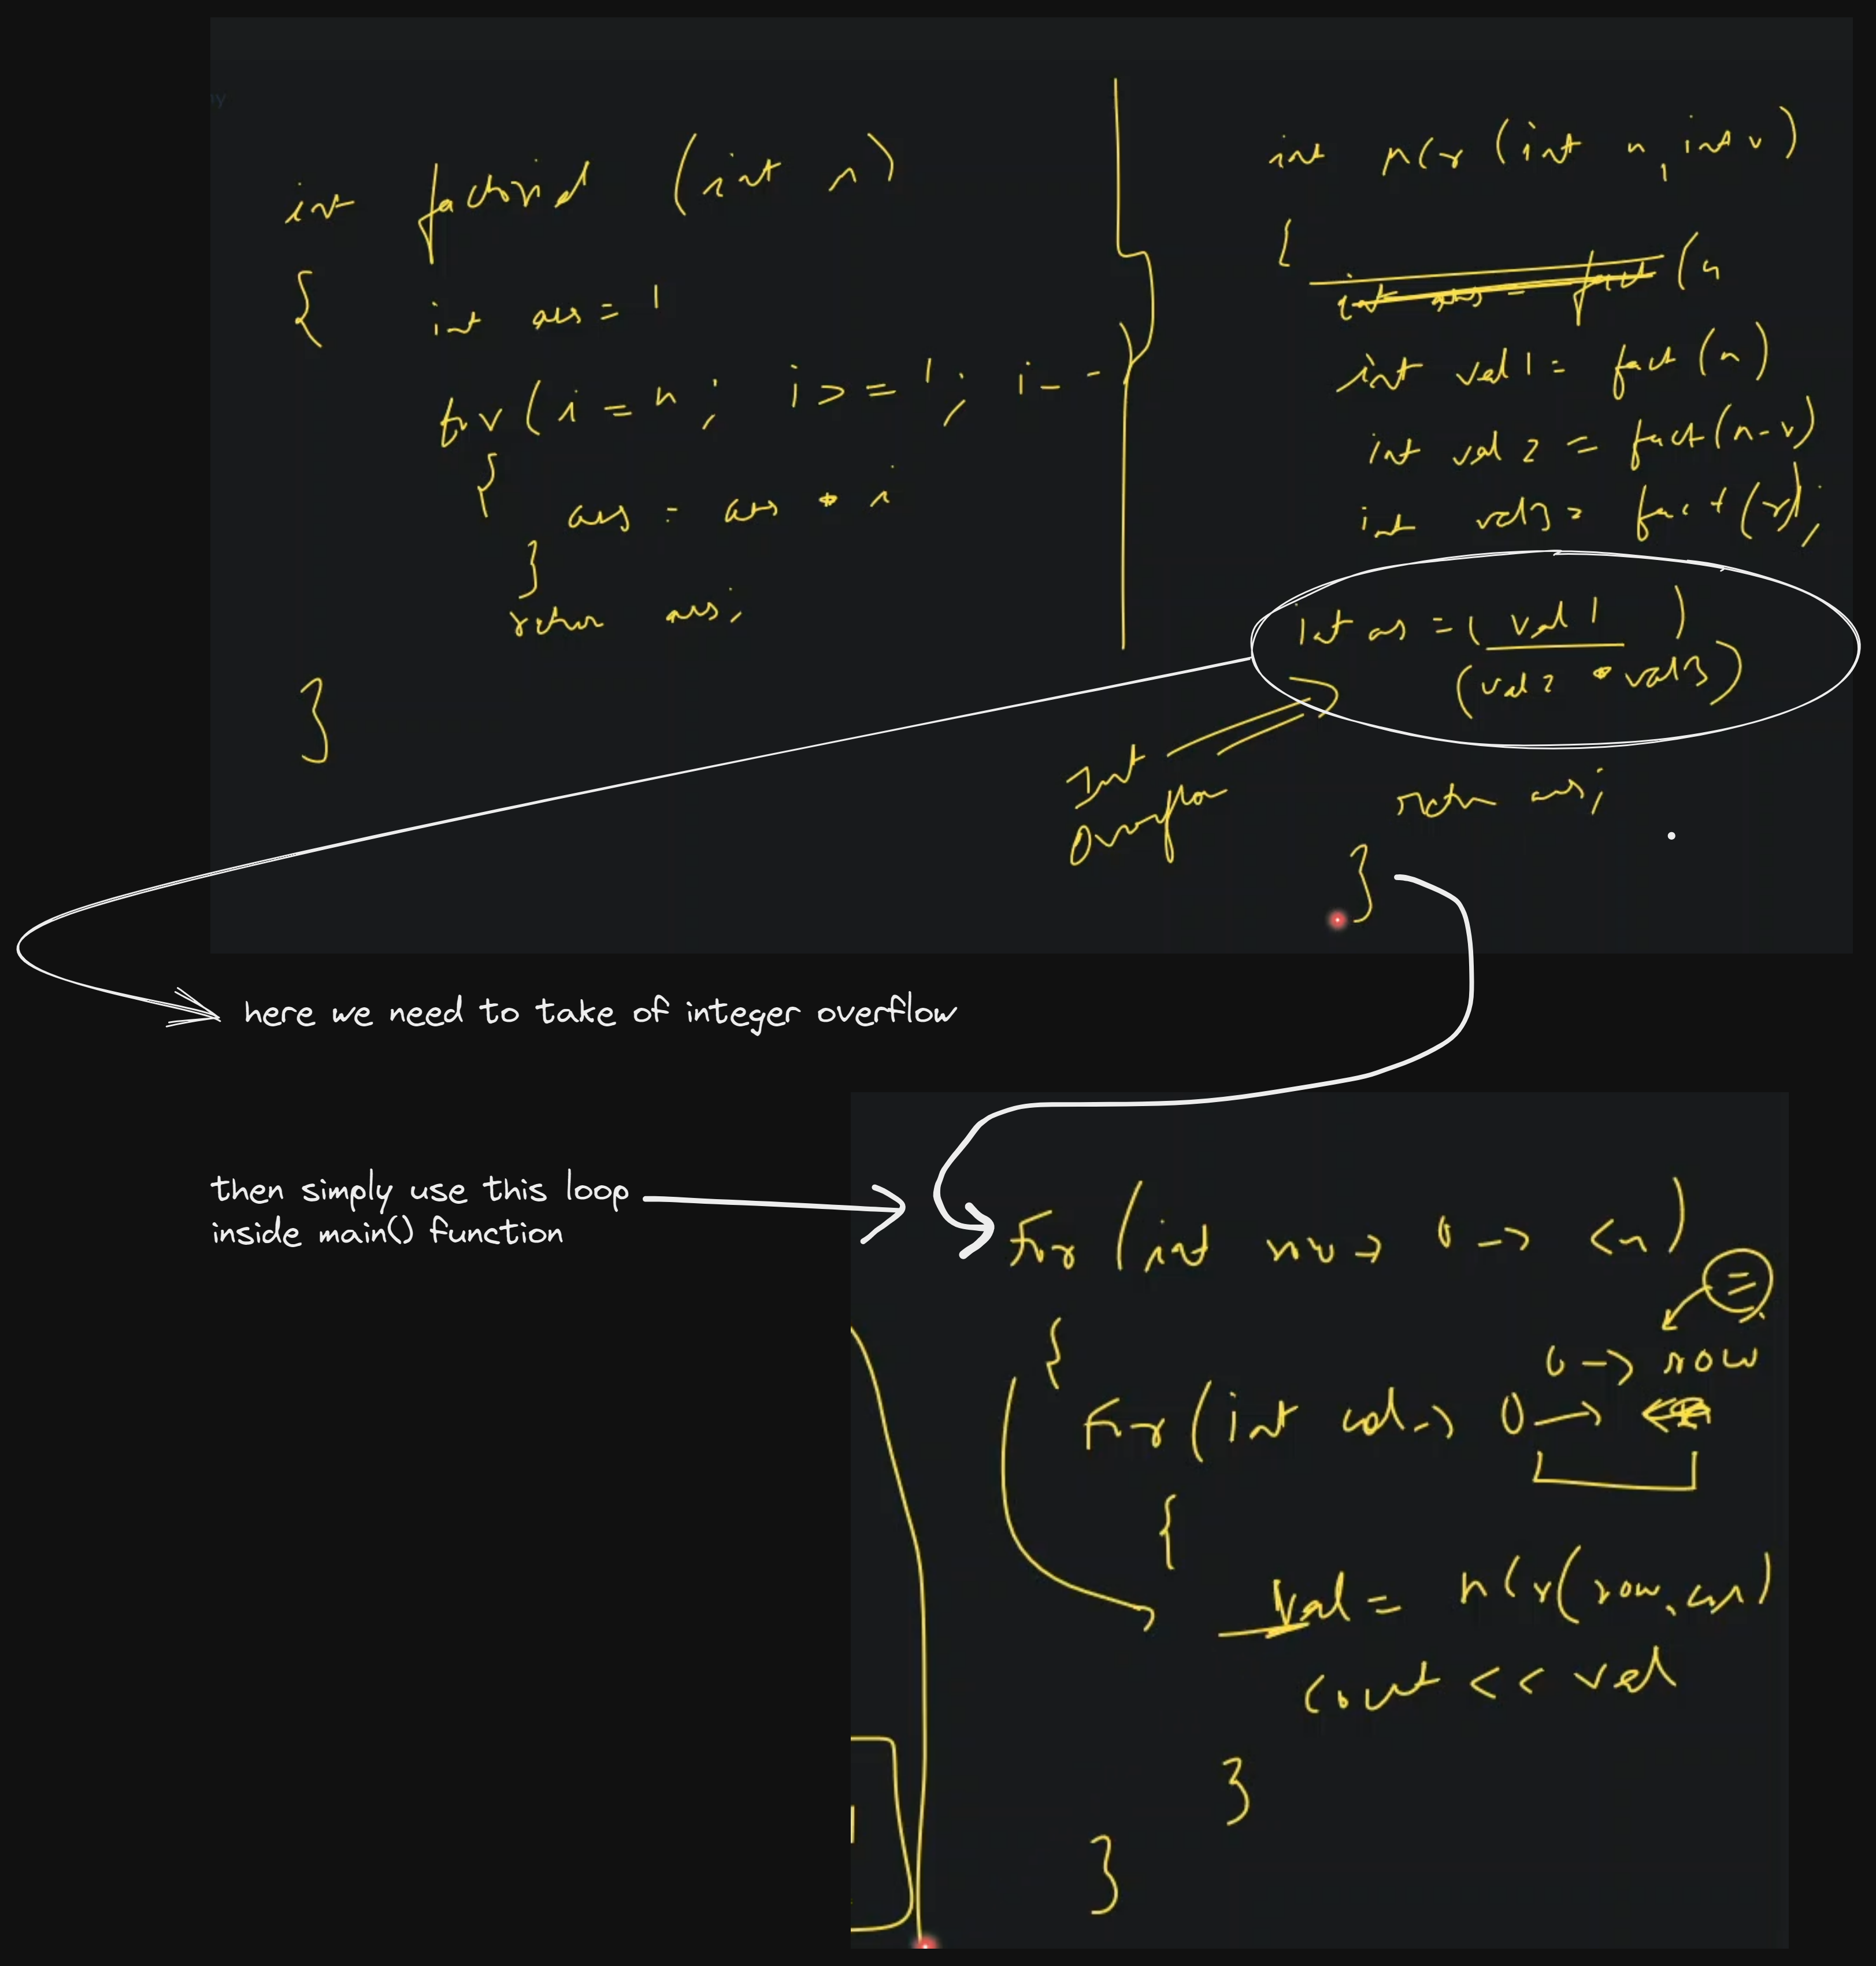 int factorial (int n)
{
int ans = 1
for ( i = n ; i >= 1 ; i - -
{
ans = ans * i
}
return ans;
}
int nCr (int n, int r)
{
int ans = fact (n
int val 1 = fact (n)
int val 2 = fact (n-r)
int val3 = fact (r);
int ans = ( val 1 )
(val 2 * val3)
Int
Overflow
return ans;
}
here we need to take of integer overflow
then simply use this loop
inside main() function
For (int row → 0 → <n)
{
=
0 → row
For (int col → 0 →
{
Val = nCr (row, col)
cout << val
}
}